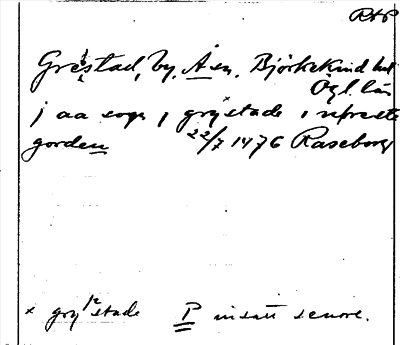 RAP
Grèstad, by, Å sn. Björkekind hd
Ögl. län
j aa sogn j gry x stade i öfreste
gorden 22/7 1476 Raseborg
x gry stade P insatt senare.